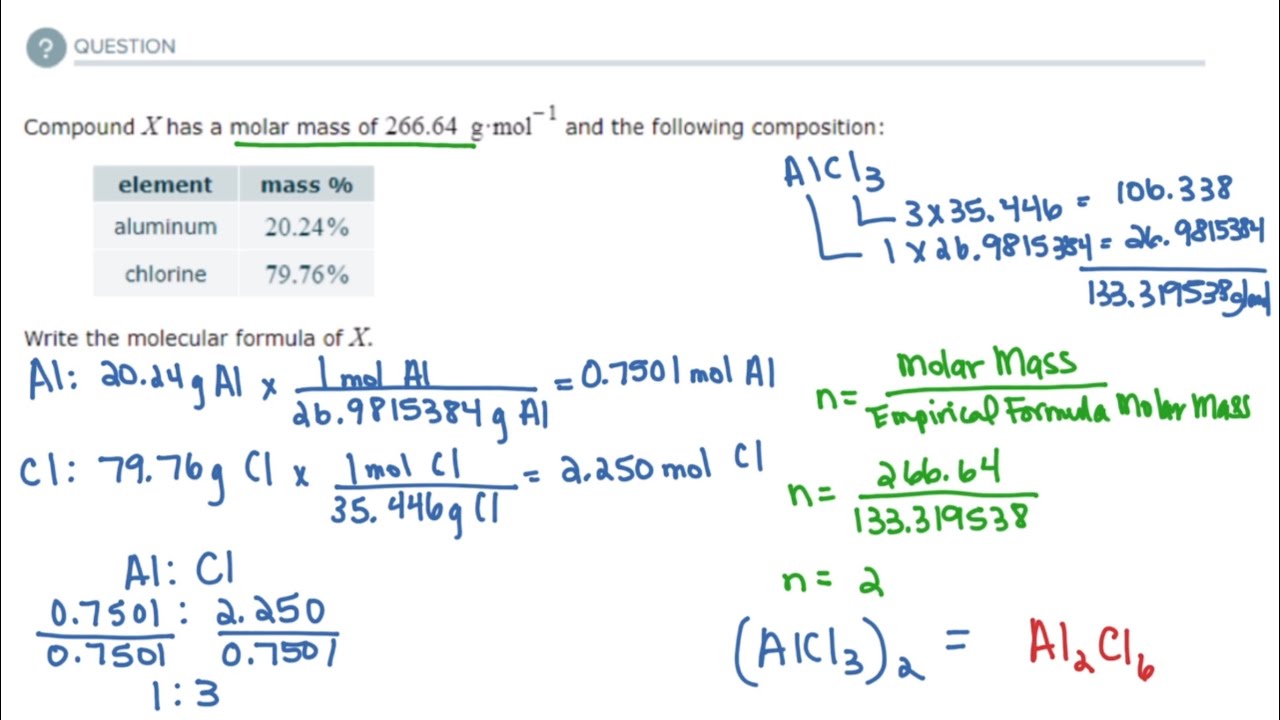 ? QUESTION
Compound X has a molar mass of 266.64 g·mol⁻¹ and the following composition:
element mass %
aluminum 20.24%
chlorine 79.76%
Write the molecular formula of X.
AlCl₃
3 x 35.446 = 106.338
1 x 26.9815384 = 26.9815384
133.319538 g/mol
Al: 20.24 g Al x 1 mol Al / 26.9815384 g Al = 0.7501 mol Al
Cl: 79.76 g Cl x 1 mol Cl / 35.446 g Cl = 2.250 mol Cl
Al : Cl
0.7501 : 2.250
0.7501 0.7501
1 : 3
n = Molar Mass / Empirical Formula Molar Mass
n = 266.64 / 133.319538
n = 2
(AlCl₃)₂ = Al₂Cl₆